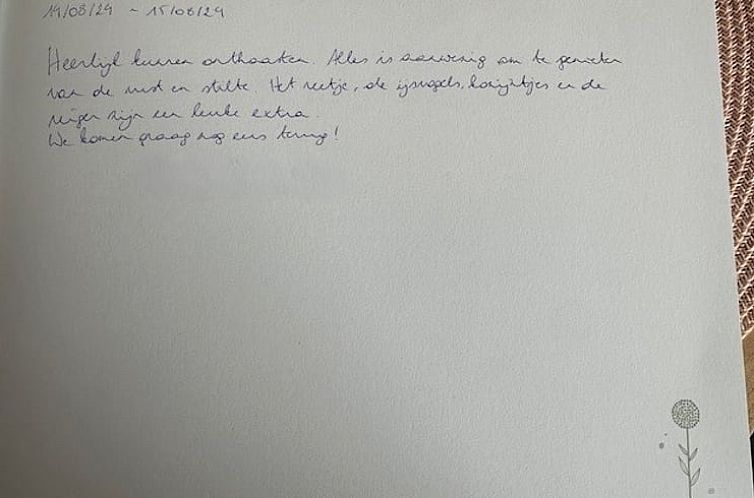 11/08/24 ~ 15/08/24
Heerlijk kunnen onthaasten. Alles is aanwezig om te genieten
van de rust en stilte. Het reetje, de ijsvogels, konijntjes en de
reiger zijn een leuke extra.
We komen graag nog eens terug!